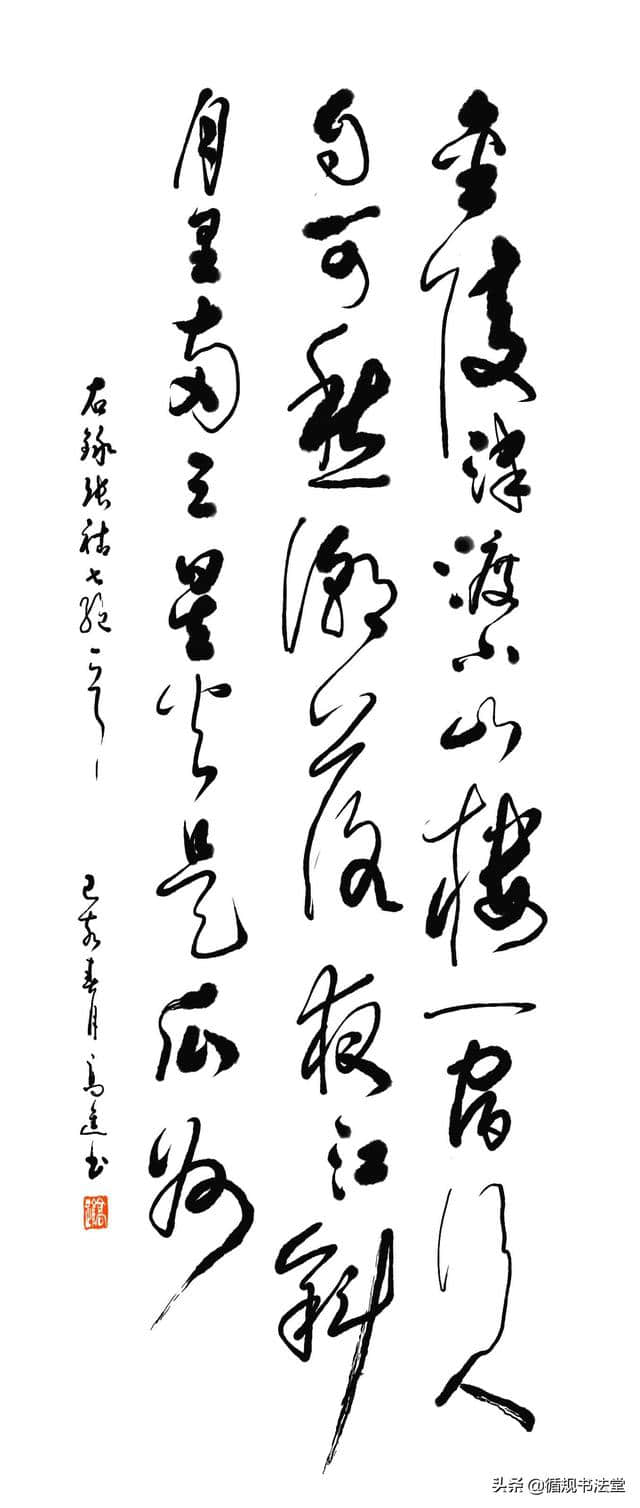 金陵津渡小山楼一宿行人
自可愁潮落夜江斜
月里两三星火是瓜州
右录张祜七绝一首
己亥春月高进书
头条@循规书法堂